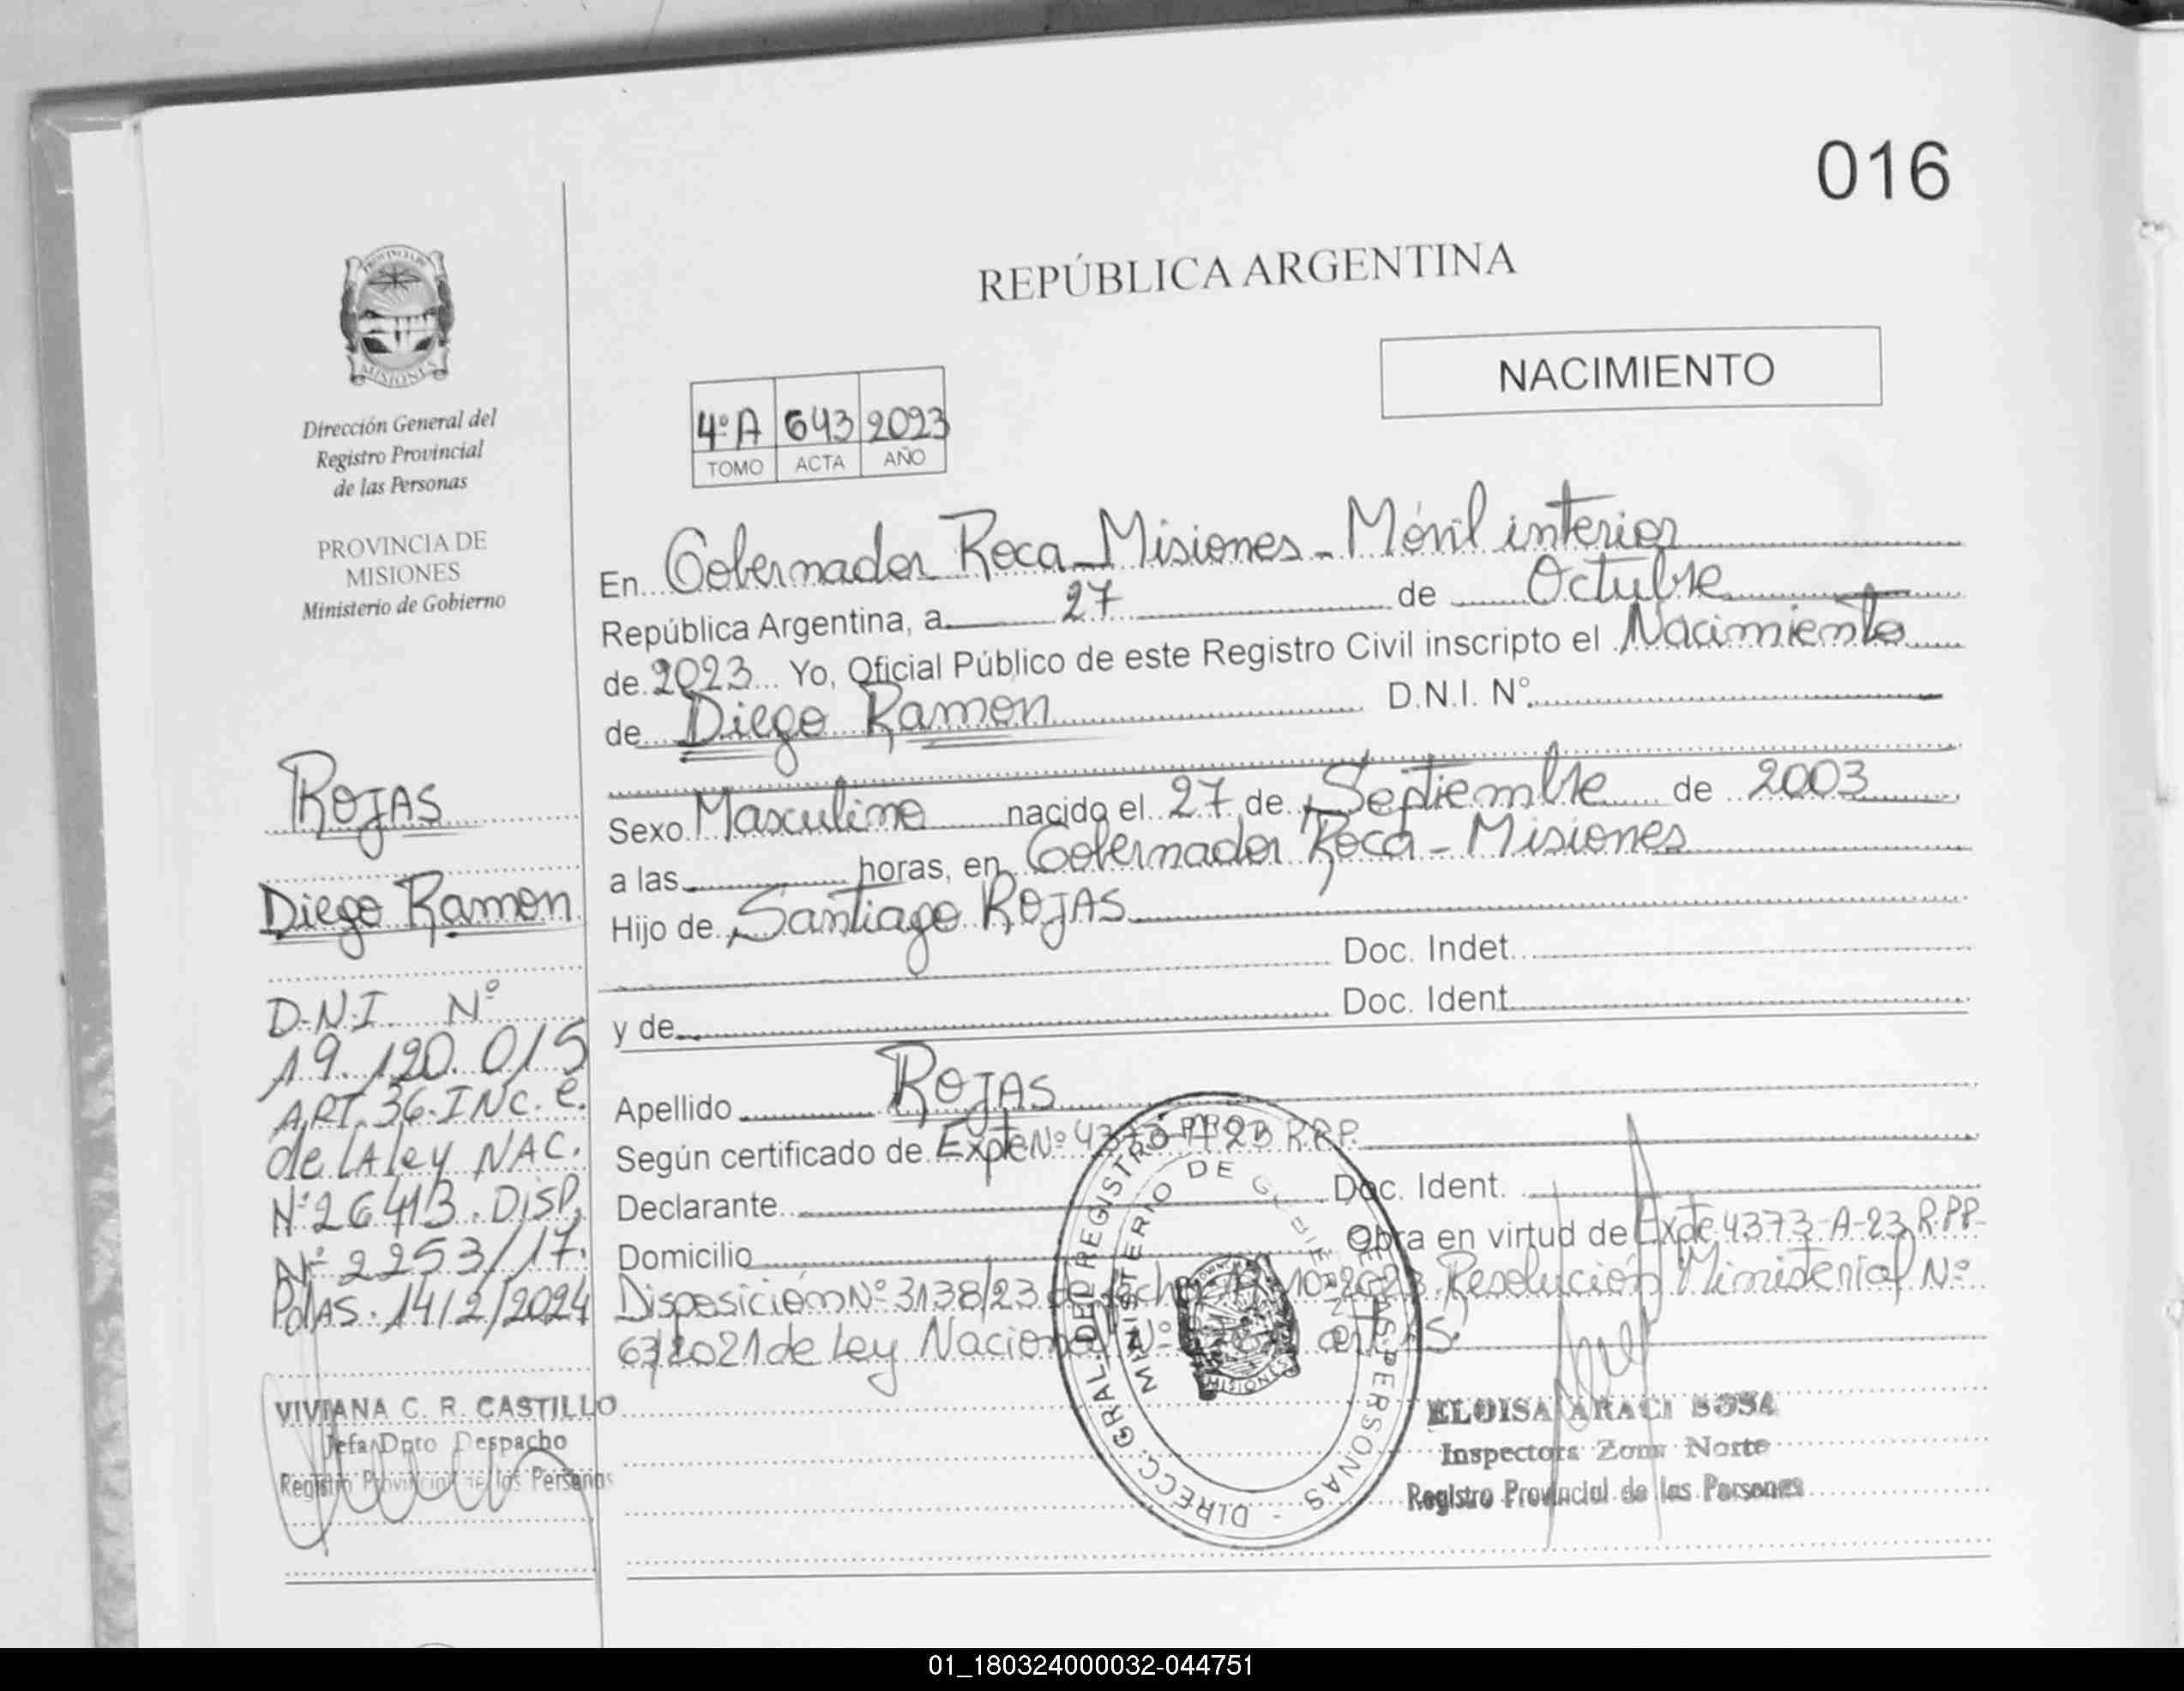 016
PROVINCIA DE
MISIONES
Dirección General del
Registro Provincial
de las Personas
PROVINCIA DE
MISIONES
Ministerio de Gobierno
ROJAS
Diego Ramon
D.N.I. Nº
19.120.015
ART.36.INC.e.
de LA ley NAC.
Nº26413.DISP.
Nº 2253/17.
PdAS.14/2/2024
VIVIANA C. R. CASTILLO
Jefa Dpto Despacho
Registro Provincial de las Personas
REPÚBLICA ARGENTINA
NACIMIENTO
4ºA 643 2023
TOMO ACTA AÑO
En Gobernador Roca Misiones - Móvil interior
República Argentina, a 27 de Octubre
de 2023 Yo, Oficial Público de este Registro Civil inscripto el Nacimiento
de Diego Ramon D.N.I. Nº
Sexo Masculino nacido el 27 de Septiembre de 2003
a las horas, en Gobernador Roca - Misiones
Hijo de Santiago ROJAS
Doc. Indet.
y de Doc. Ident.
Apellido ROJAS
Según certificado de Expte Nº 4373-A-23 R.P.P.
Declarante Doc. Ident.
Domicilio Obra en virtud de Expte 4373-A-23 R.P.P.
Disposición Nº 3138/23 de fecha 10-2023 Resolución Ministerial Nº
63/2021 de Ley Nacional Nº
DIRECC. GRAL. DEL REGISTRO DE LAS PERSONAS
MINISTERIO DE
MISIONES
ELOISA ARACI SOSA
Inspectora Zona Norte
Registro Provincial de las Personas
01_180324000032-044751